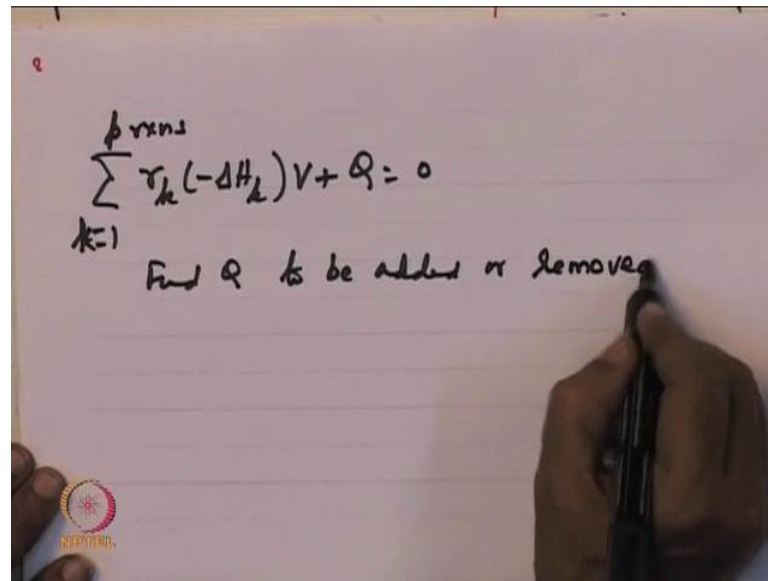 8
p rxns
∑ r_k (-ΔH_k) V + Q = 0
k=1
Find Q to be added or removed
NPTEL